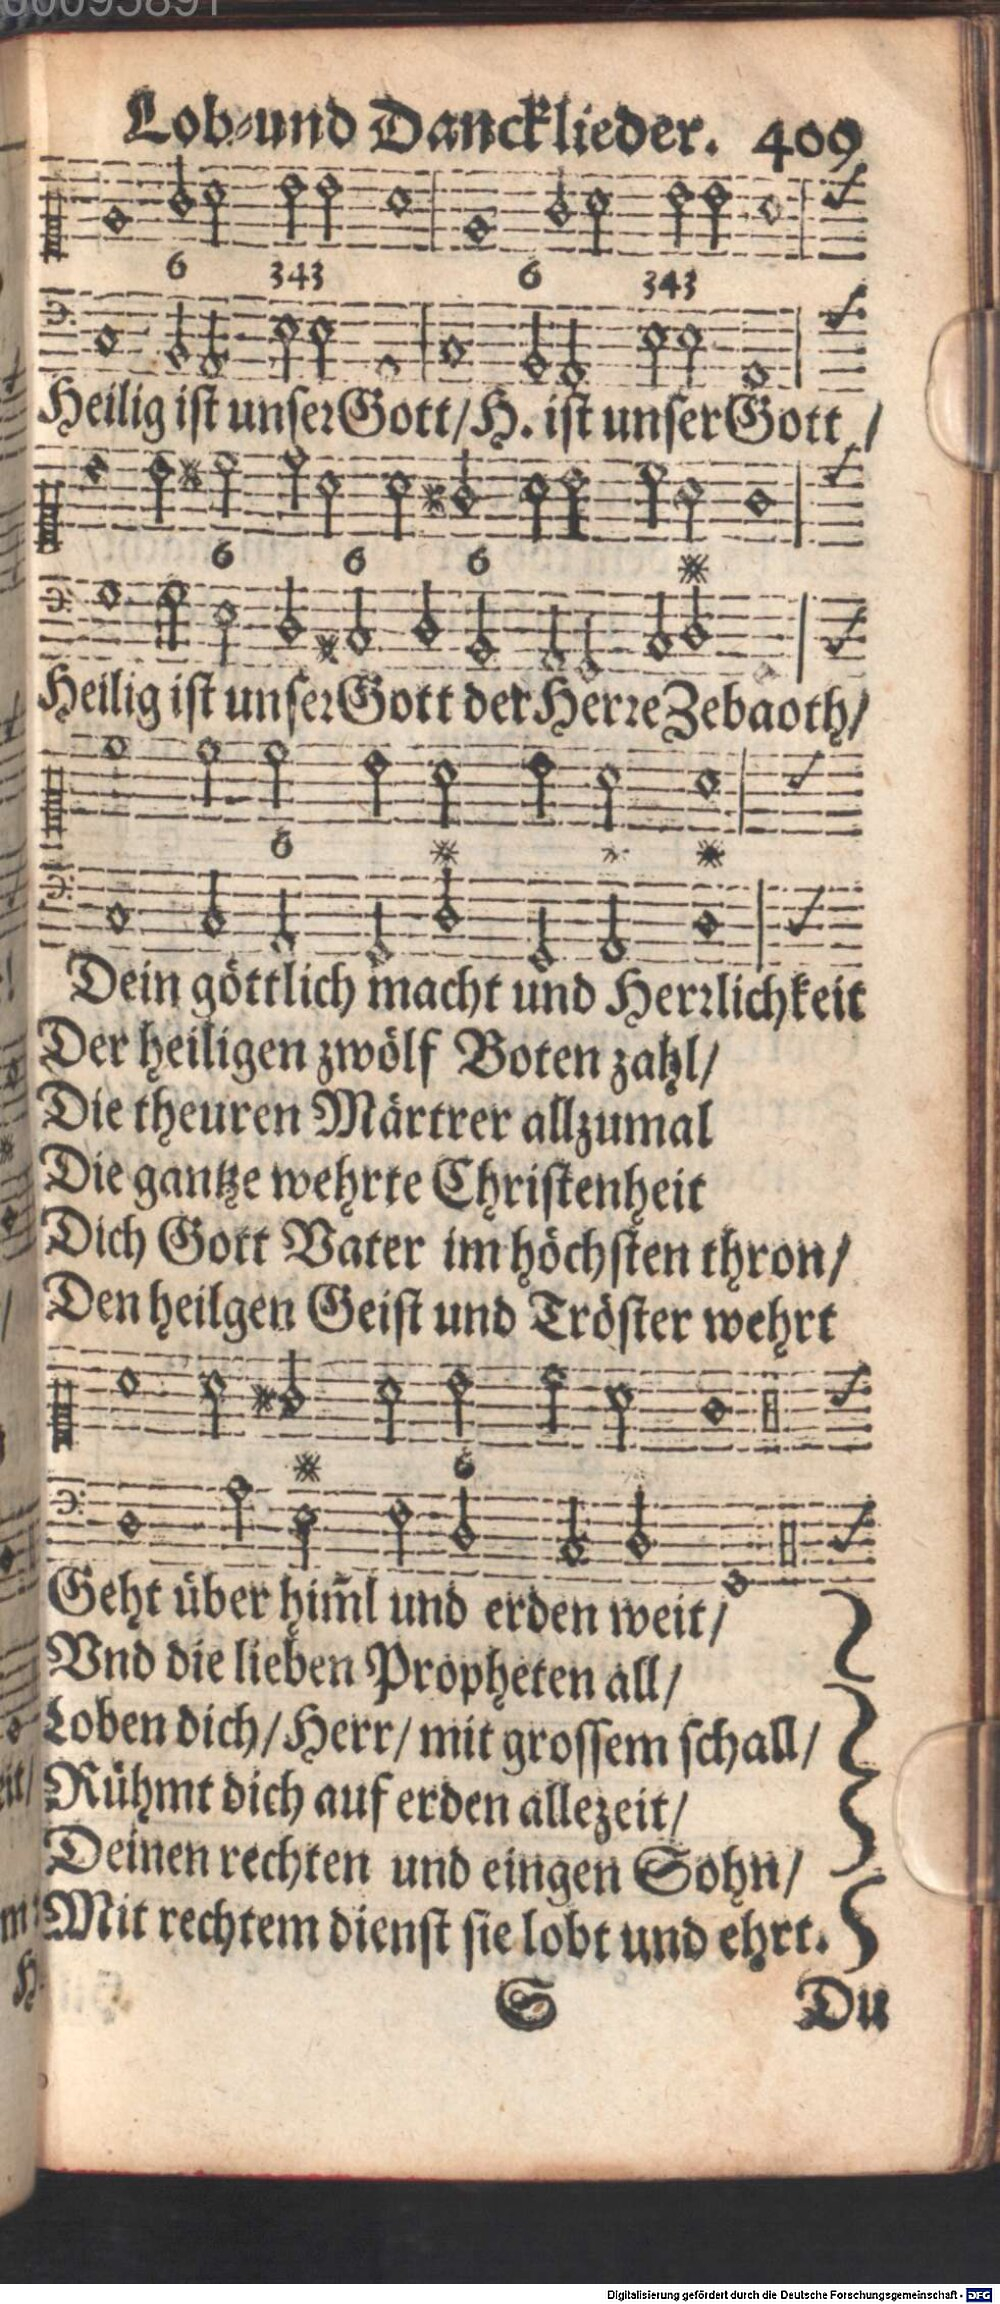 00095891
Lob-und Dancklieder. 409
6 343 6 343
Heilig ist unser Gott/ H. ist unser Gott /
6 6 6
Heilig ist unser Gott der Herre Zebaoth/
6
Dein göttlich macht und Herrlichkeit
Der heiligen zwölf Boten zahl/
Die theuren Märtrer allzumal
Die gantze wehrte Christenheit
Dich Gott Vater im höchsten thron/
Den heilgen Geist und Tröster wehrt
6
Geht über him̃l und erden weit/
Vnd die lieben Propheten all/
Loben dich/ Herr/ mit grossem schall/
Rühmt dich auf erden allezeit/
Deinen rechten und eingen Sohn/
Mit rechtem dienst sie lobt und ehrt.
S Du
Digitalisierung gefördert durch die Deutsche Forschungsgemeinschaft - DFG